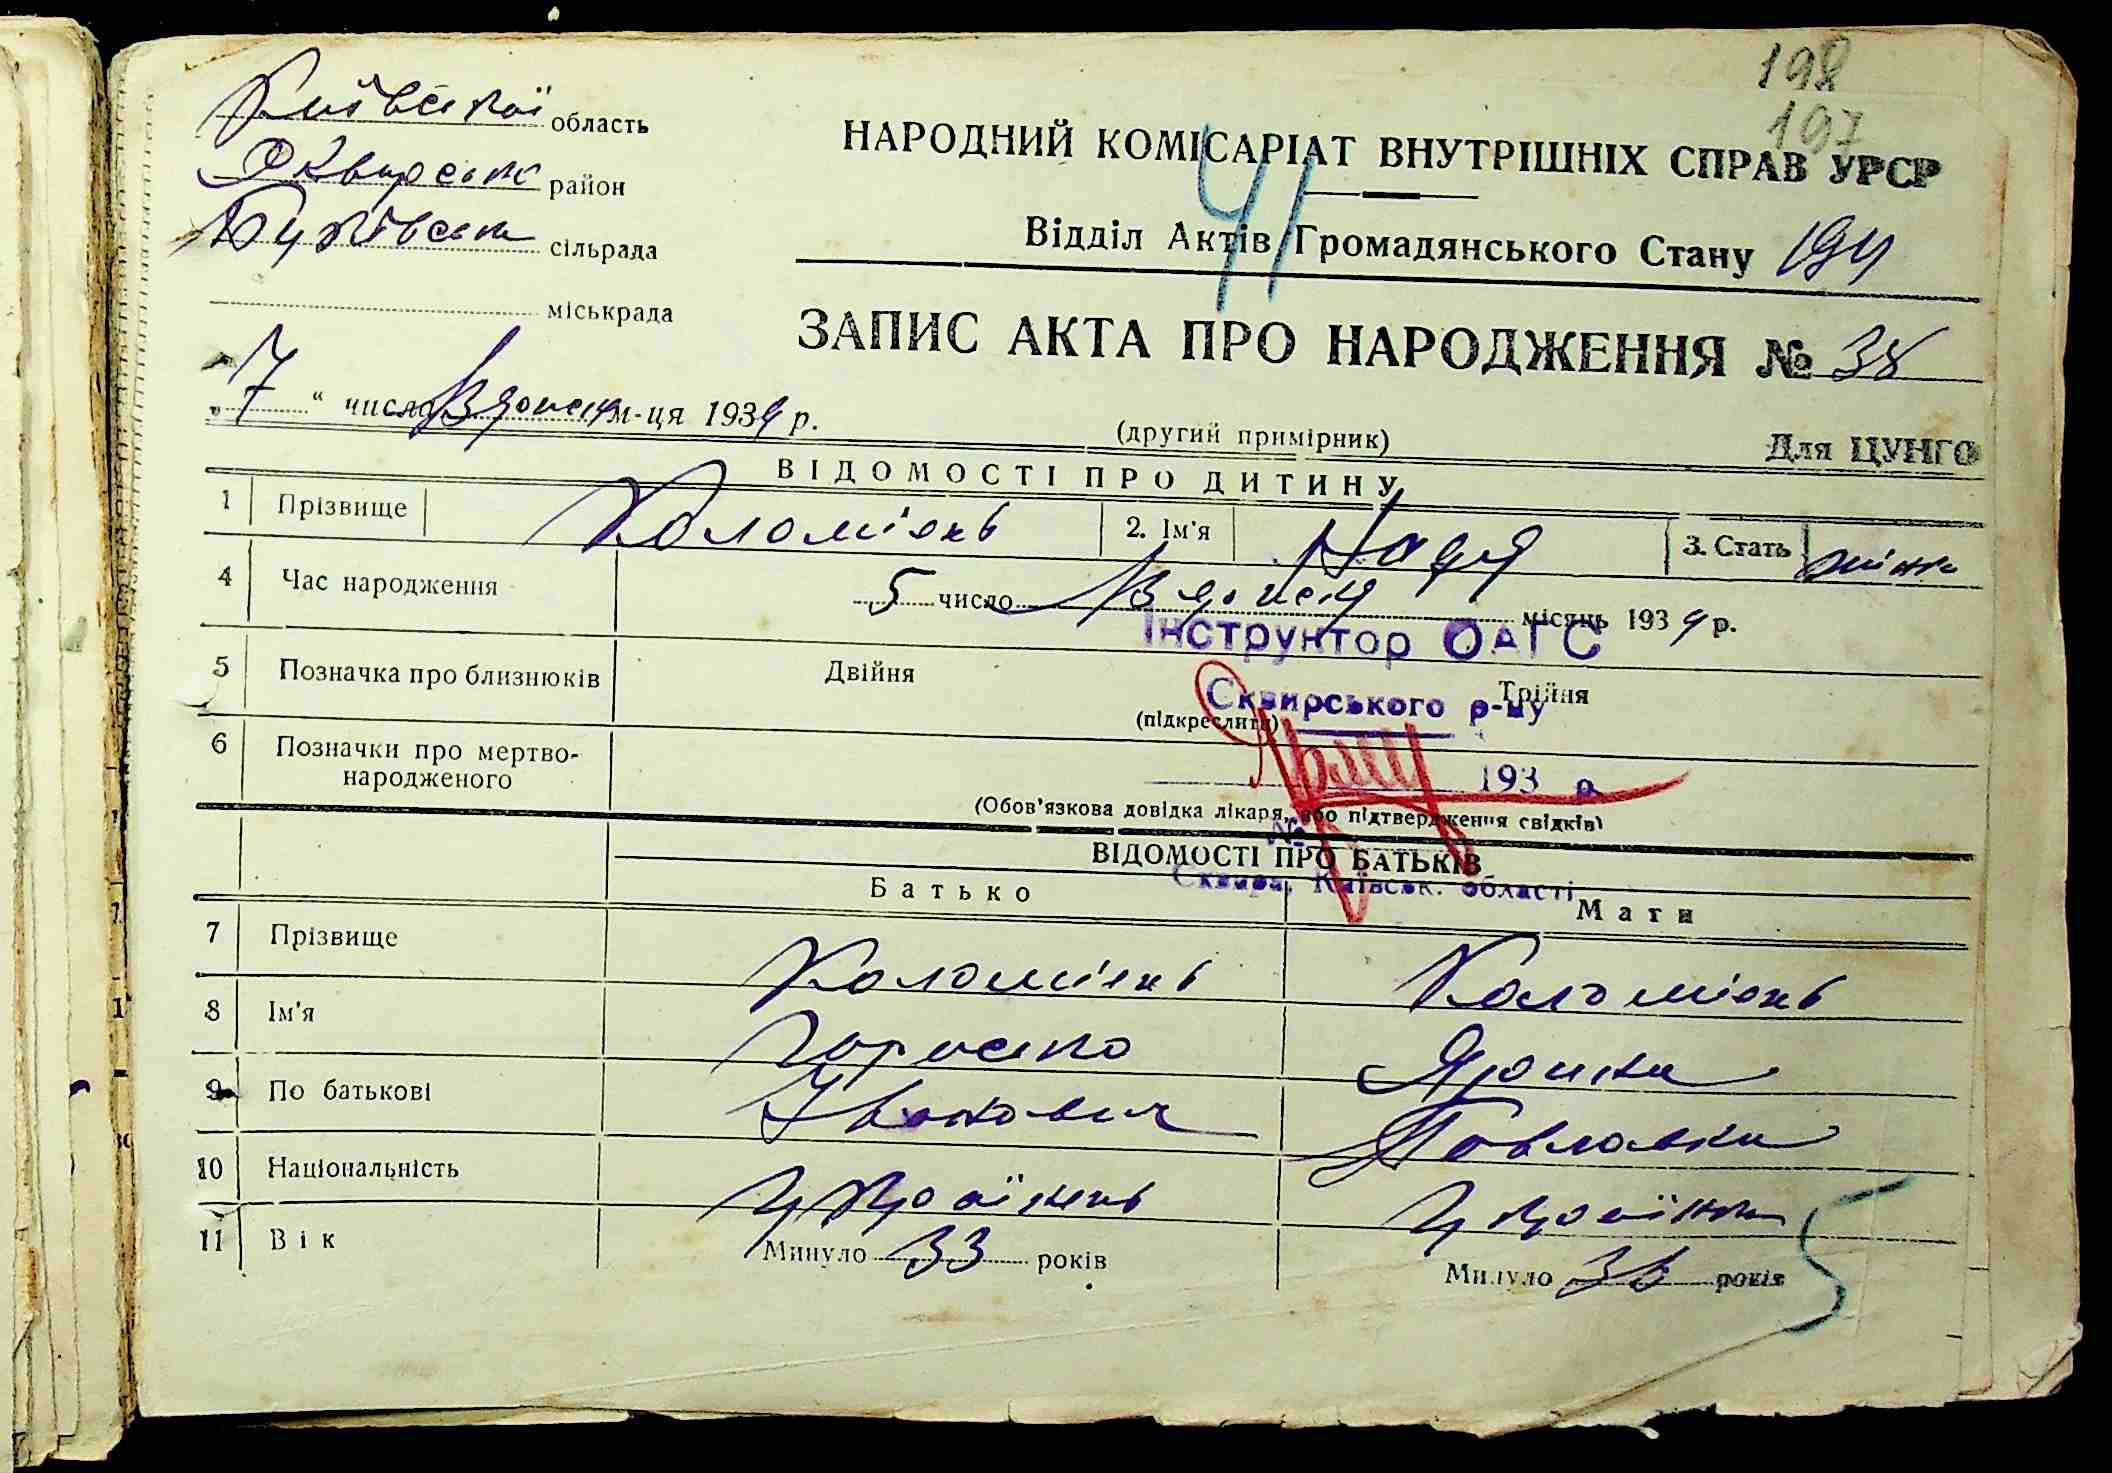 198
197
Київської область
Сквирськ район
Буківськ сільрада
міськрада
НАРОДНИЙ КОМІСАРІАТ ВНУТРІШНІХ СПРАВ УРСР
41
Відділ Актів Громадянського Стану 194
ЗАПИС АКТА ПРО НАРОДЖЕННЯ № 38
„ 7 “ число Вдопеня м-ця 1934 р.
(другий примірник) Для ЦУНГО
ВІДОМОСТІ ПРО ДИТИНУ
1 Прізвище Коломієць 2. Ім'я Надя 3. Стать жіноч
4 Час народження 5 число місяць 1934 р.
Інструктор ОАГС
5 Позначка про близнюків Двійня Трійня
(підкреслити)
Сквирського р-ну
6 Позначки про мертво-
народженого
193 р.
(Обов'язкова довідка лікаря, або підтвердження свідків)
№
ВІДОМОСТІ ПРО БАТЬКІВ
Сквира, Київськ. області
Батько Мати
7 Прізвище Коломієць Коломієць
8 Ім'я Тараско
9 По батькові Іванович Павловна
10 Національність українець українка
11 Вік Минуло 33 років Минуло 36 років
5